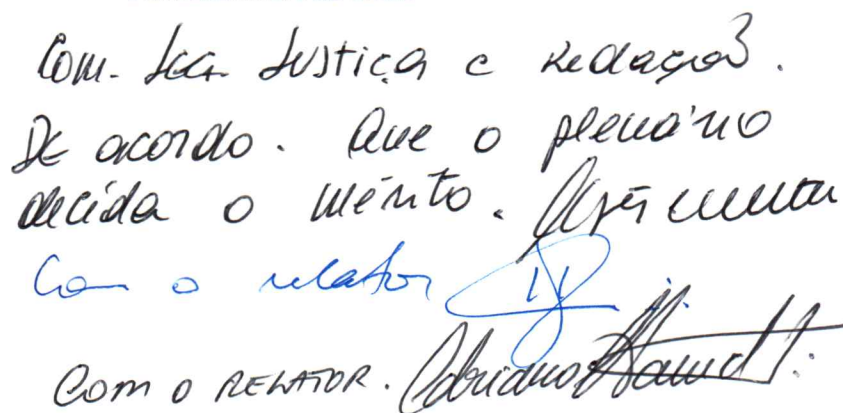 Com. Leg. Justiça e Redação.
De acordo. Que o plenário
decida o mérito.
Com o relator
Com o RELATOR. Adriano